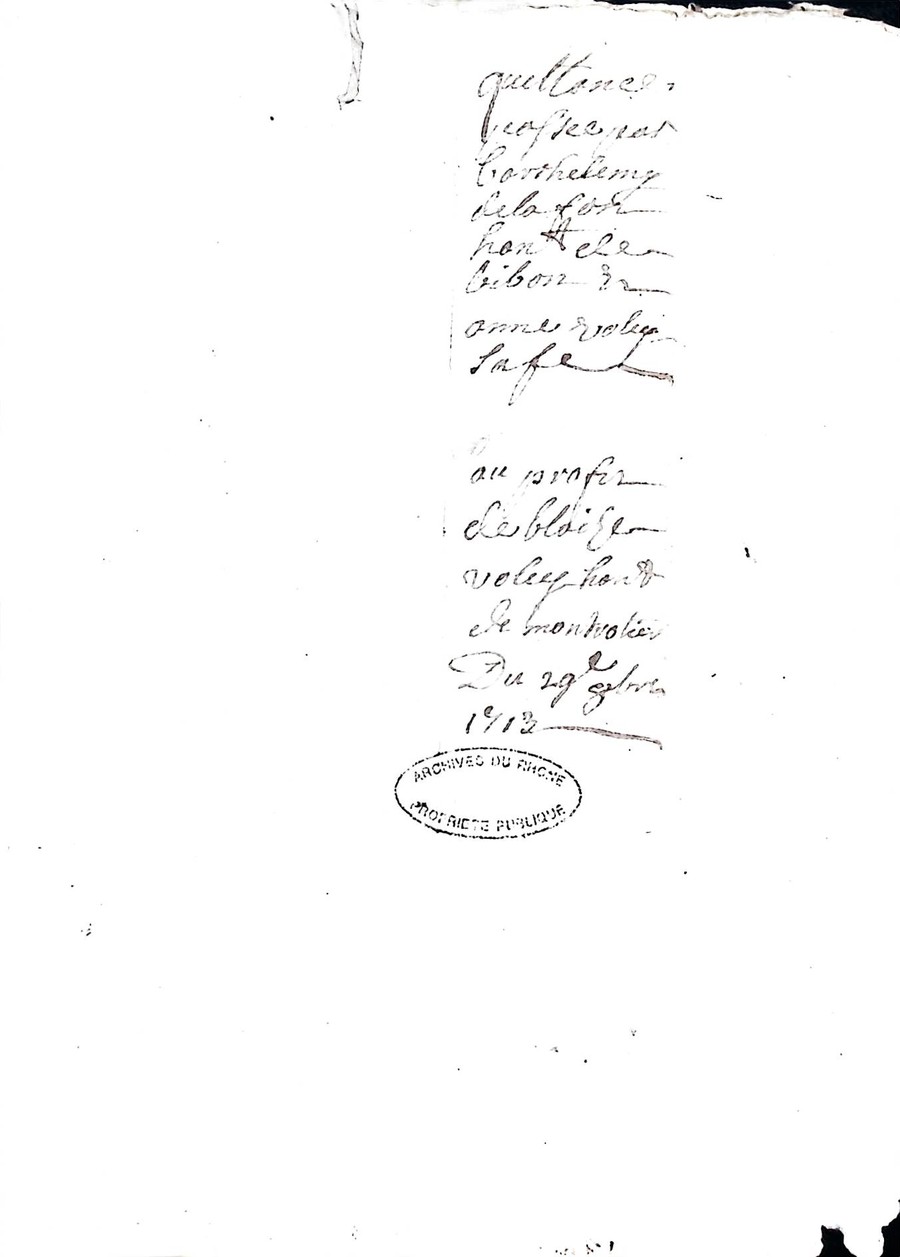 quittance
passee par
barthelemy
dela fon
han^tt de
bibon &
anne voley
sa fe
au profit
de blaize
voley han^tt
de montrotier
Du 29^e 8bre
1713
ARCHIVES DU RHONE
PROPRIETE PUBLIQUE